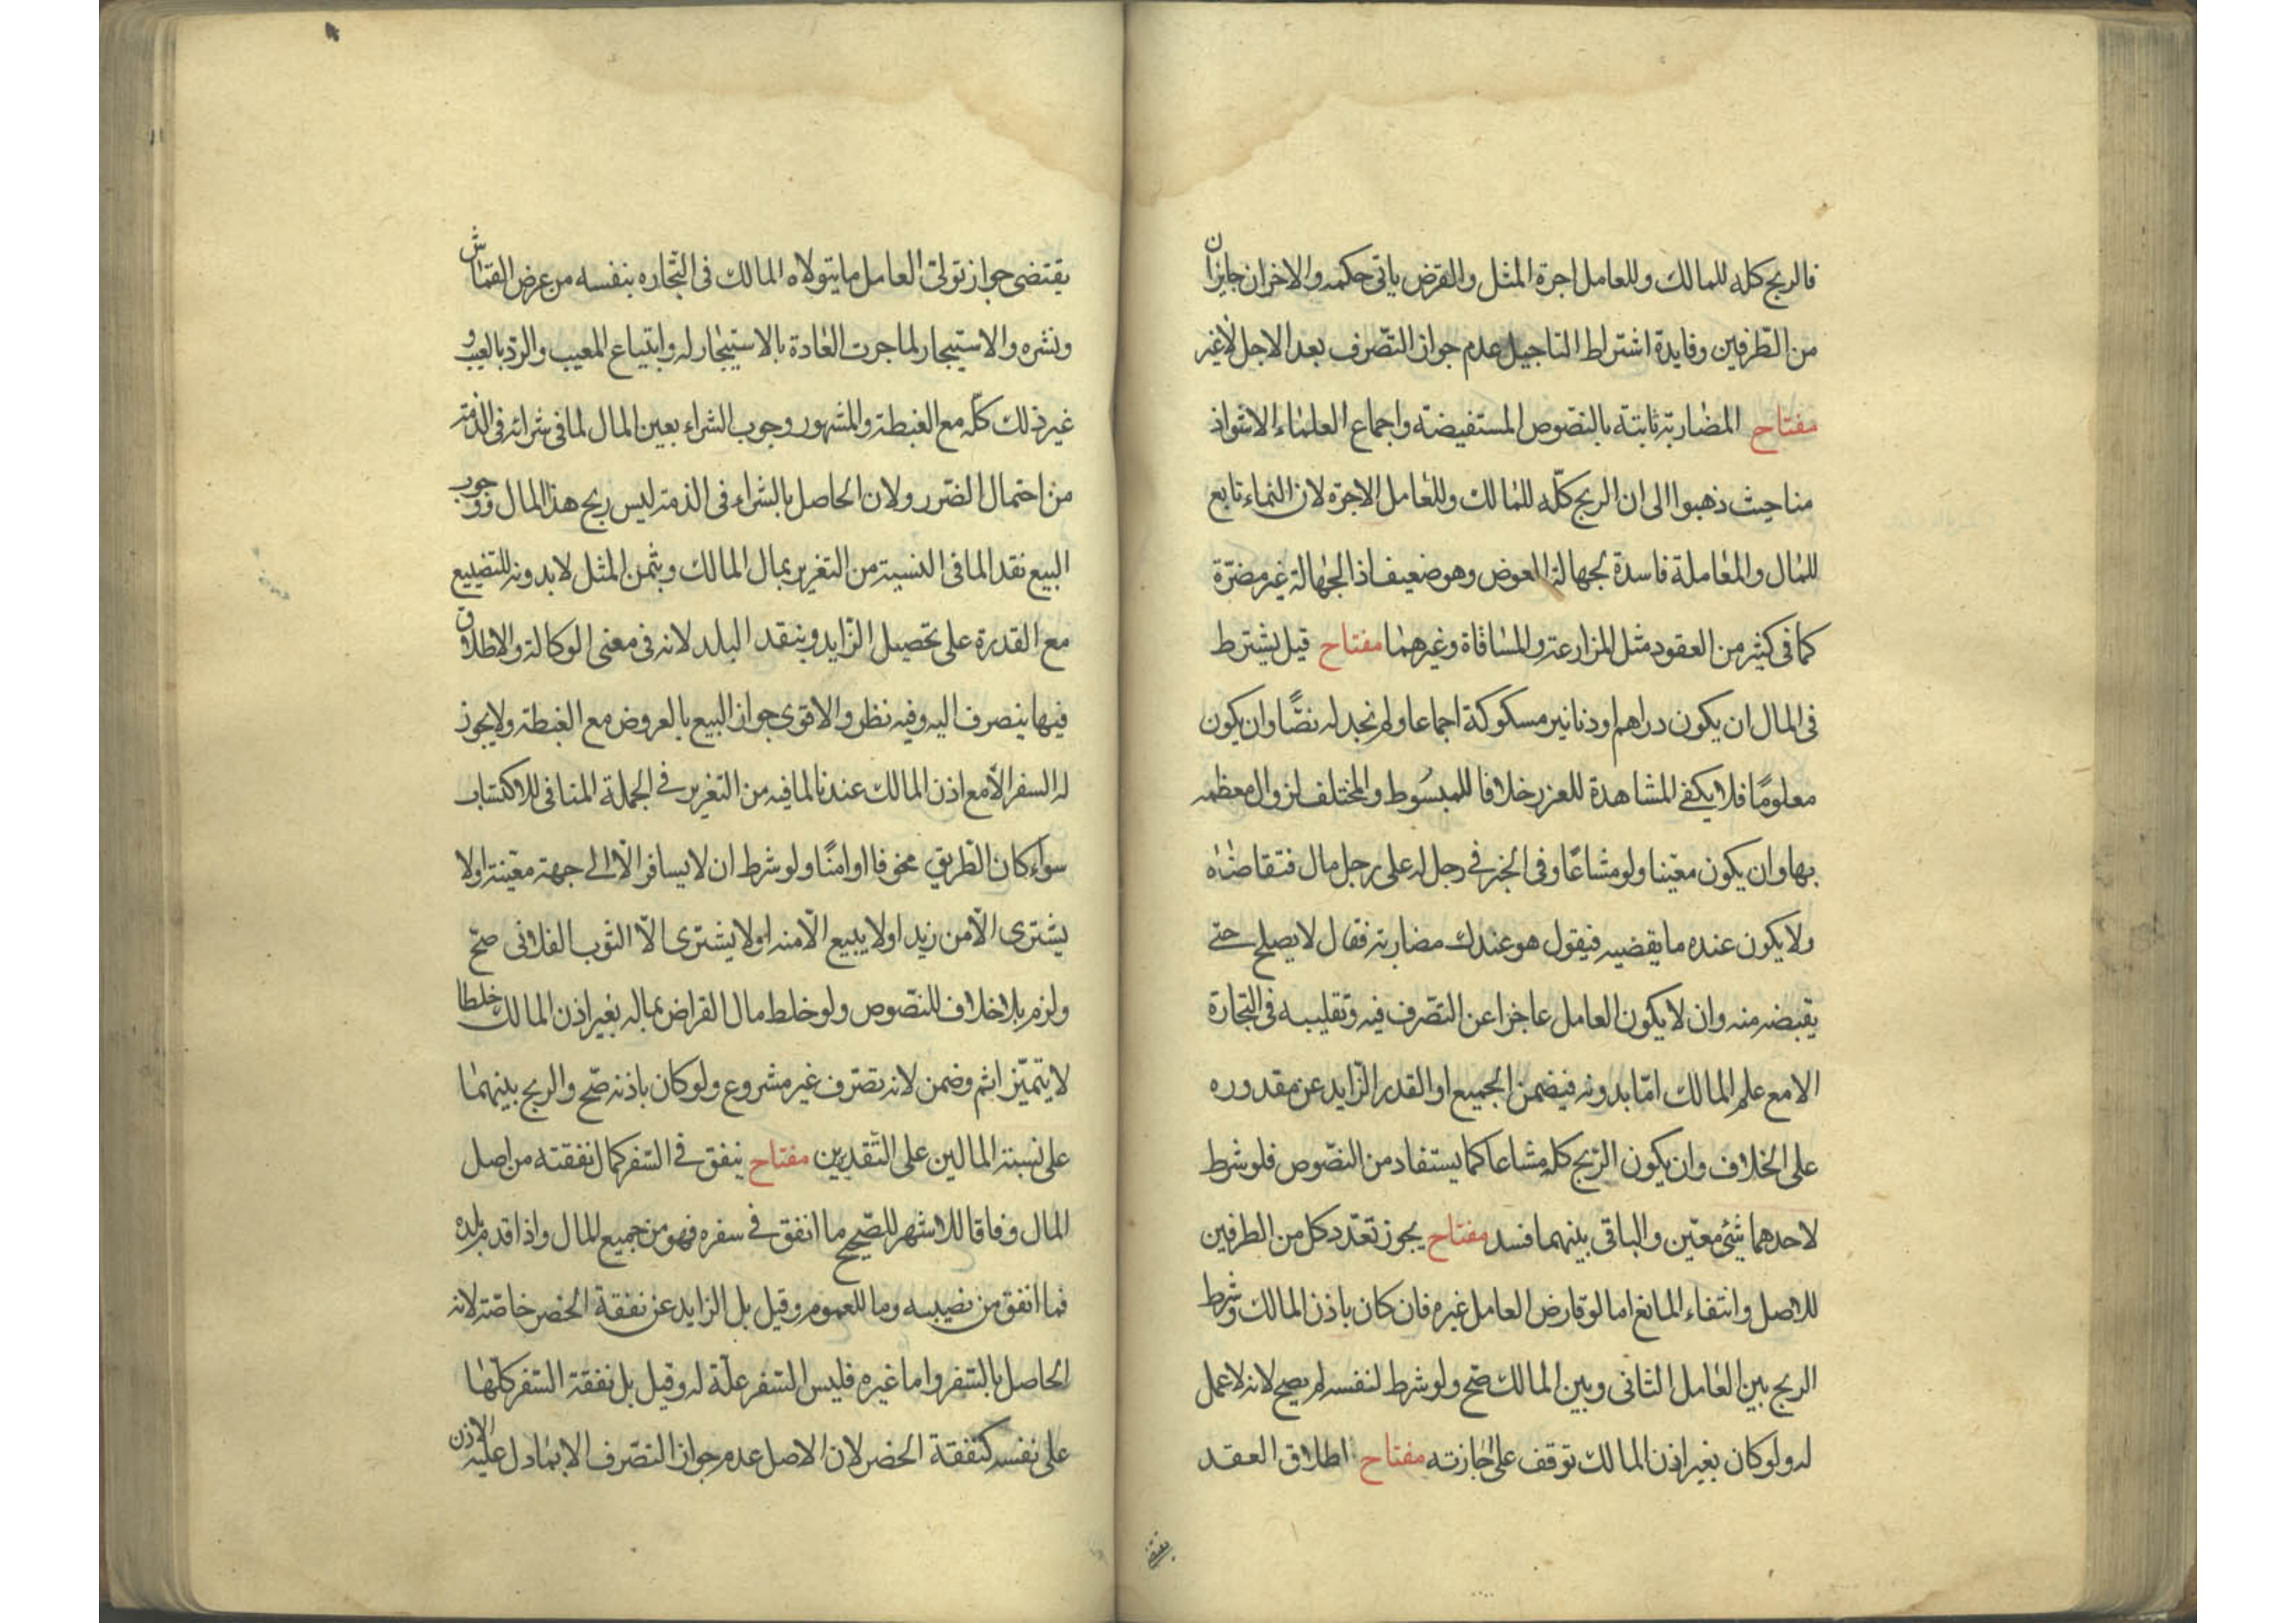 فالربح كله للمالك وللعامل اجرة المثل والقرض ياتى حكمه والاخران جايزان
من الطّرفين وفايدة اشتراط التاجيل عدم جواز التصّرف بعد الاجل لاغير
مفتاح المضاربة ثابتة بالنصّوص المستفيضة واجماع العلماء الا شواذ
منا حيث ذهبوا الى ان الربح كلّه للمالك وللعامل الاجرة لان النماء تابع
للمال والمعاملة فاسدة لجهالة العوض وهو ضعيف اذ الجهالة غير مضرّة
كما فى كثير من العقود مثل المزارعة والمساقاة وغيرهما مفتاح قيل يشترط
فى المال ان يكون دراهم او دنانير مسكوكة اجماعا ولم نجد له نصًّا وان يكون
معلومًا فلا يكفى المشاهدة للغرر خلافا للمبسُوط والمختلف لزوال معظمه
بها وان يكون معيّنا ولو مشاعًا وفى الخبر فى رجل له على رجل مال فتقاضاه
ولا يكون عنده ما يقضيه فيقول هو عندك مضاربة فقال لا يصلح حتى
يقبضه منه وان لا يكون العامل عاجزا عن التصّرف فيه وتقليبه فى التجارة
الا مع علم المالك امّا بدونه فيضمن الجميع او القدر الزّايد عن مقدوره
على الخلاف وان يكون الرّبح كله مشاعا كما يستفاد من النصّوص فلو شرط
لاحدهما شئ معيّن والباقى بينهما فسد مفتاح يجوز تعدّد كل من الطرفين
للاصل وانتفاء المانع اما لو قارض العامل غيره فان كان باذن المالك وشرط
الربح بين العامل الثانى وبين المالك صّح ولو شرط لنفسه لم يصح لانه لا عمل
له ولو كان بغير اذن المالك توقف على اجازته مفتاح اطلاق العقد
يقتضى
يقتضى جواز تولى العامل ما يتولاه المالك فى التّجاره بنفسه من عرض القماش
ونشره والاستيجار لما جرت العادة بالاستيجار له وابتياع المعيب والردّ بالعيب و
غير ذلك كلّه مع الغبطة والمشهور وجوب الشراء بعين المال لما فى شرائه فى الذمّة
من احتمال الضّرر ولان الحاصل بالشراء فى الذمة ليس ربح هذا المال ووجوب
البيع نقد لما فى النسية من التغرير بمال المالك وبثمن المثل لا بدونه للتضييع
مع القدرة على تحصيل الزّايد وبنقد البلد لانه فى معنى الوكالة والاطلاق
فيها ينصرف اليه وفيه نظر والاقوى جواز البيع بالعروض مع الغبطة ولا يجوز
له السفر الّا مع اذن المالك عندنا لما فيه من التغرير فى الجملة المنافى للاكتساب
سواء كان الطّريق مخوفا او امنًا ولو شرط ان لا يسافر الّا الى جهة معّينة او لا
يشترى الّا من زيد او لا يبيع الّا منه او لا يشترى الّا الثوب الفلانى صحّ
ولزم بلا خلاف للنصّوص ولو خلط مال القراض بماله بغير اذن المالك خلطا
لا يتميّز اثم وضمن لانه تصّرف غير مشروع ولو كان باذنه صّح والربح بينهما
على نسبة المالين على التّقديرين مفتاح ينفق فى السّفر كمال نفقته من اصل
المال وفاقا للاشهر للصّحيح ما انفق فى سفره فهو من جميع المال واذا قدم بلده
فما انفق من نصيبه وما للعموم وقيل بل الزايد عن نفقة الحضر خاصّة لانه
الحاصل بالسّفر واما غيره فليس السّفر علّة له وقيل بل نفقة السّفر كلّها
على نفسه كنفقة الحضر لان الاصل عدم جواز التصّرف الا بما دل عليه الاذن